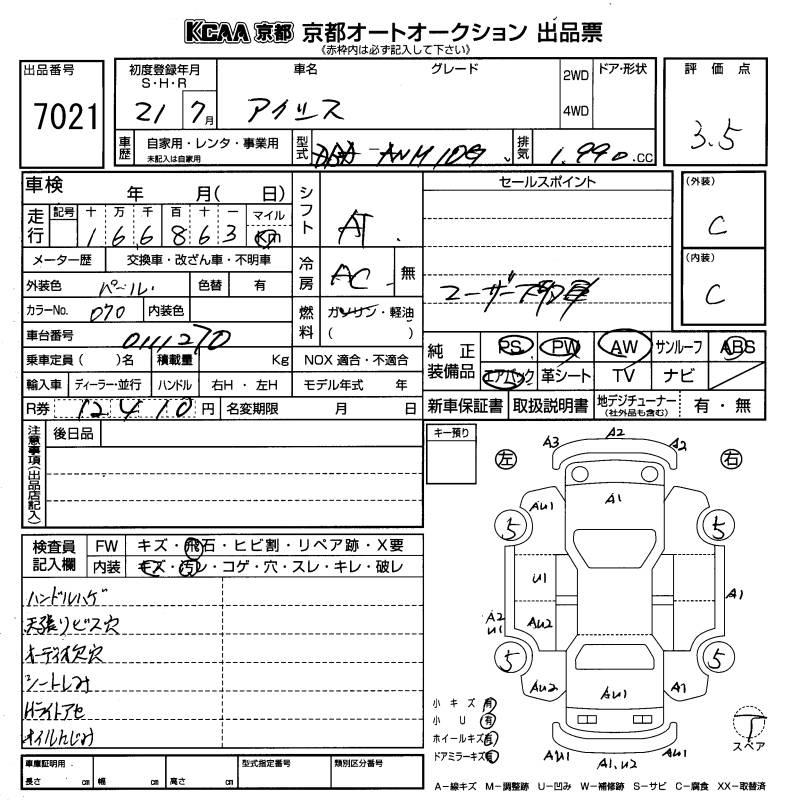 KCAA 京都 京都オートオークション 出品票
(赤枠内は必ず記入して下さい)
出品番号 7021
初度登録年月 S・H・R 21 7月
車名 グレード アイシス
2WD 4WD
ドア・形状
評価点 3.5
車歴 自家用・レンタ・事業用 未記入は自家用
型式 ANM10G
排気 1.990.CC
車検 年 月( 日)
走行 記号 十 万 千 百 十 一 マイル
1 6 6 8 6 3 Km
メーター歴 交換車・改ざん車・不明車
外装色 パール 色替 有
カラーNo. 070 内装色
車台番号 0111270
乗車定員( )名 積載量 Kg
輸入車 ディーラー・並行 ハンドル 右H・左H
R券 12410円 名変期限 月 日
シフト AT
冷房 AC 無
燃料 ガソリン・軽油 ( )
NOX適合・不適合
モデル年式 年
セールスポイント
ユーザー下取車
(外装) C
(内装) C
純正装備品 PS PW AW サンルーフ ABS
エアバック 革シート TV ナビ
新車保証書 取扱説明書 地デジチューナー (社外品も含む) 有・無
注意事項(出品店記入) 後日品
キー預り
検査員記入欄 FW キズ・飛石・ヒビ割・リペア跡・X要
内装 キズ・汚レ・コゲ・穴・スレ・キレ・破レ
ハンドルハゲ
天張りビス穴
オーディオ欠穴
シートしみ
Hライトアセ
オイルにじみ
左 右
A3 A2 A2
AU1 A1
5 5
U1
A1
A2 U1 AU2
5 5
AU2 AU1 A1
AU1 A1,U2 AU1
小キズ 有
小U 有
ホイールキズ 有
ドアミラーキズ 有
T スペア
車庫証明用 長さ cm 幅 cm 高さ cm
型式指定番号 類別区分番号
A−線キズ M−調整跡 U−凹み W−補修跡 S−サビ C−腐食 XX−取替済